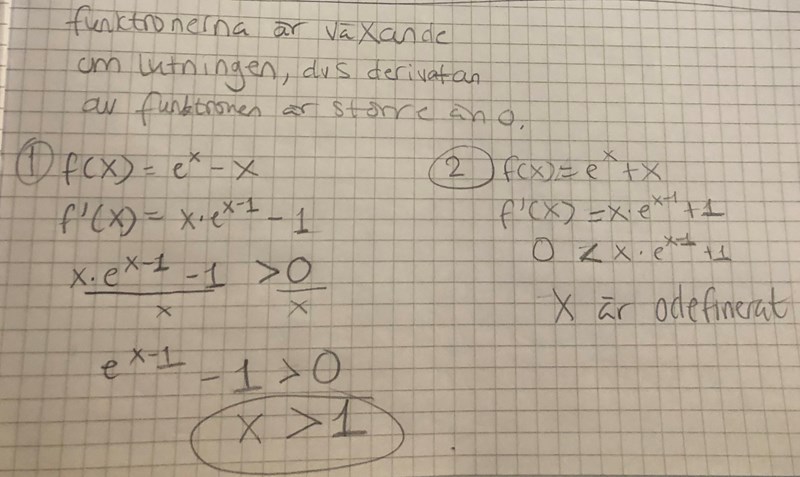 funktionerna är växande
om lutningen, dvs derivatan
av funktionen är större än 0.
① f(x) = e^x - x
f'(x) = x·e^(x-1) - 1
(x·e^(x-1) - 1)/x > 0/x
e^(x-1) - 1 > 0
x > 1
② f(x) = e^x + x
f'(x) = x·e^(x-1) + 1
0 < x·e^(x-1) + 1
X är odefinerat